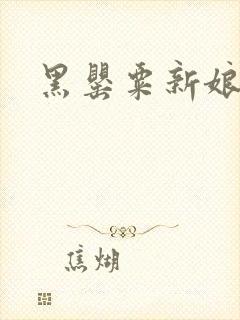 黑罂粟新娘
焦煳